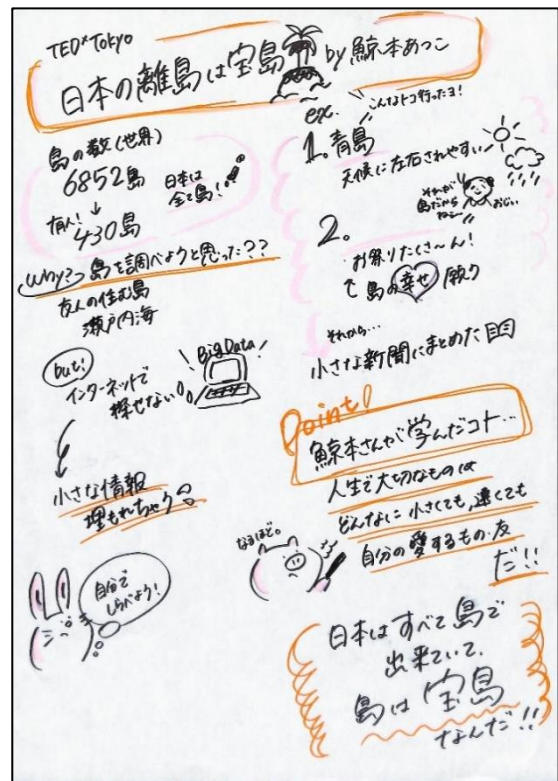 TED×Tokyo
日本の離島は宝島 by 鯨本あつこ
島の数(世界)
6852島
有人!↓
430島
日本は
全て島!
Why? 島を調べようと思った??
友人の住む島
瀬戸内海
but!
インターネットで
探せない!
Big Data
小さな情報
埋もれちゃう
自分で
しらべよう!
ex. こんなトコ行ったヨ!
1. 青島
天候に左右されやすい
それが
島だから
ねぇ〜
おじい
2.
お祭りたくさ〜ん!
て 島の幸せ願う
それから…
小さな新聞にまとめた
Point!
鯨本さんが学んだコト…
人生で大切なものは
どんなに小さくても、遠くても
自分の愛するもの・友
だ!!
なるほど。
日本はすべて島で
出来ていて、
島は宝島
なんだ!!